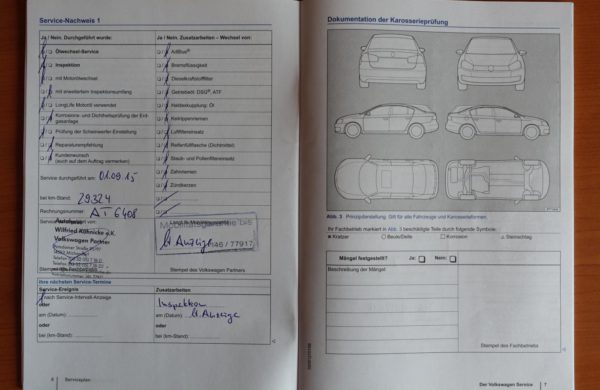 Service-Nachweis 1
Ja / Nein, Durchgeführt wurde:
Ja / Nein, Zusatzarbeiten – Wechsel von:
Ölwechsel-Service
AdBlue®
Inspektion
Bremsflüssigkeit
mit Motorölwechsel
Dieselkraftstofffilter
mit erweitertem Inspektionsumfang
Getriebeöl: DSG®, ATF
LongLife Motoröl verwendet
Haldexkupplung: Öl
Korrosions- und Dichtheitsprüfung der Erdgasanlage
Keilrippenriemen
Prüfung der Scheinwerfer-Einstellung
Luftfiltereinsatz
Reparaturempfehlung
Reifenfüllflasche (Dichtmittel)
Kundenwunsch
(auch auf dem Auftrag vermerken)
Staub- und Pollenfiltereinsatz
Zahnriemen
Zündkerzen
Service durchgeführt am: 01.09.15
bei km-Stand: 29324
Rechnungsnummer: AT 6408
Autohaus
Wilfried
Volkswagen Partner
Mobilitätsgarantie bis
lt. Anzeige
546 / 77917
Stempel des Volkswagen Partners
Ihre nächsten Service-Termine
Service-Ereignis
Zusatzarbeiten
nach Service-Intervall-Anzeige
oder
am (Datum):
oder
bei (km-Stand):
Inspektion
lt. Anzeige
am (Datum):
oder
bei (km-Stand):
Serviceplan
Dokumentation der Karosserieprüfung
Abb. 3 Prinzipdarstellung: Gilt für alle Fahrzeuge und Karosserieformen.
Ihr Fachbetrieb markiert in Abb. 3 beschädigte Teile durch folgende Symbole:
Kratzer
Beule/Delle
Korrosion
Steinschlag
Mängel festgestellt?
Ja:
Nein:
Beschreibung der Mängel:
Stempel des Fachbetriebs
Der Volkswagen Service
7